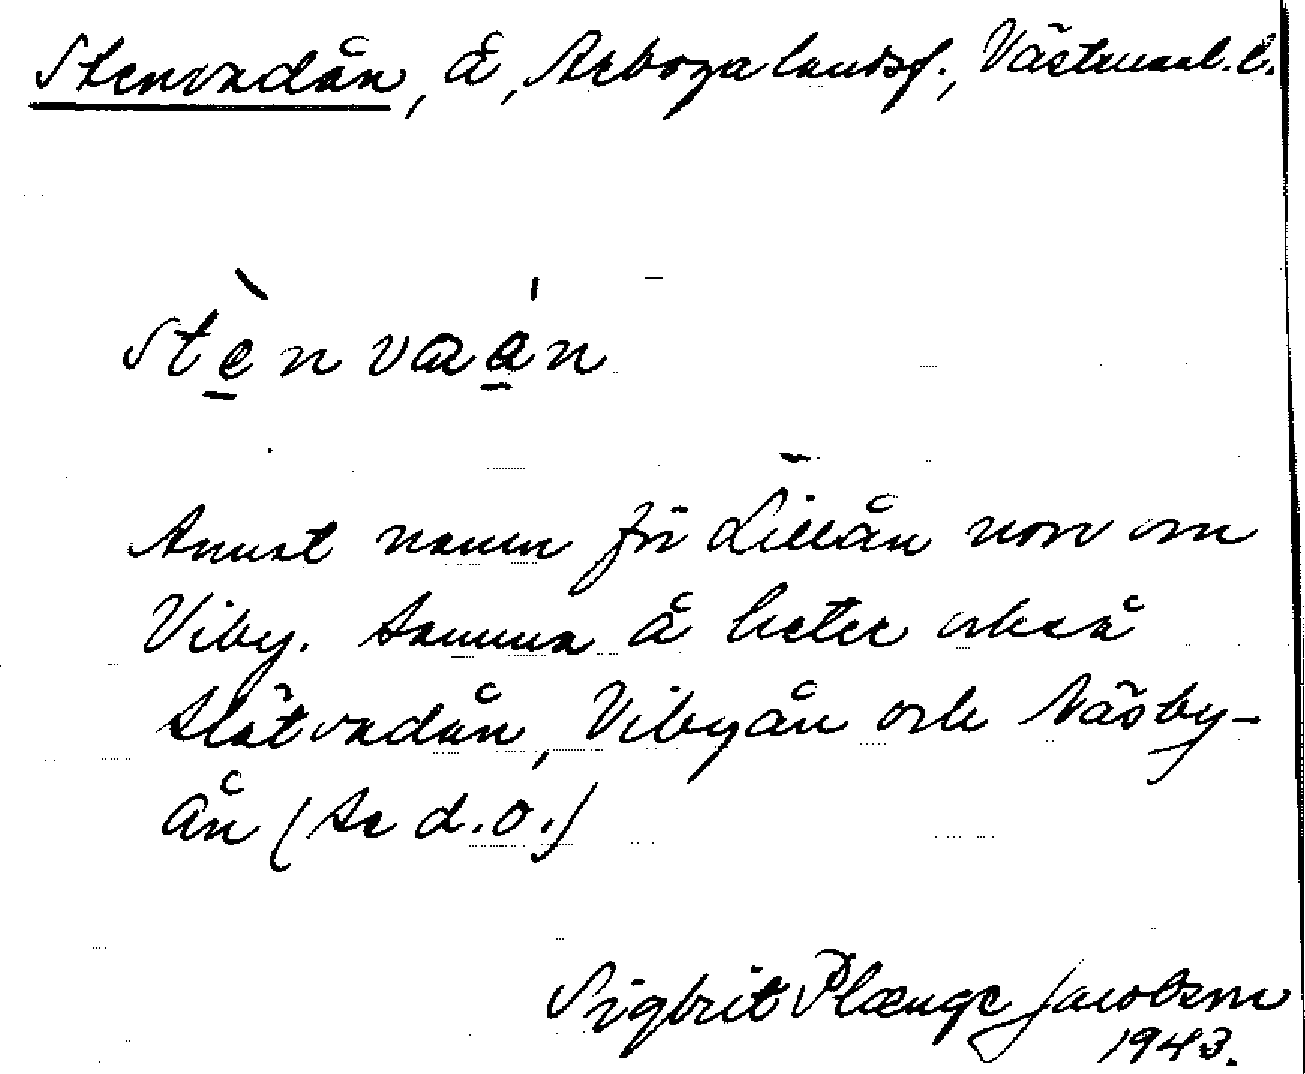 Stenvadån, å, Arboga landsf., Västmanl. l.
Stènvaán
Annat namn för Lillån norr om
Viby. Samma å heter också
Slätvadån, Vibyån och Näsby-
ån (Se d.o.)
Sigbrit Plænge Jacobson
1943.